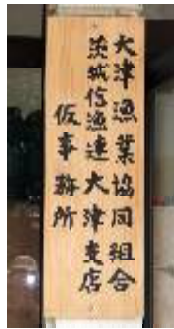 大津漁業協同組合
茨城信漁連大津支店
仮事務所